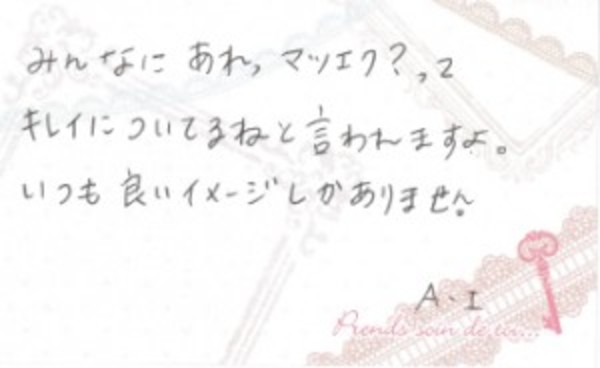 みんなに あれ,マツエク?,って
キレイについてるねと言われますよ。
いつも 良いイメージしかありません。
A・I
Prends soin de toi...